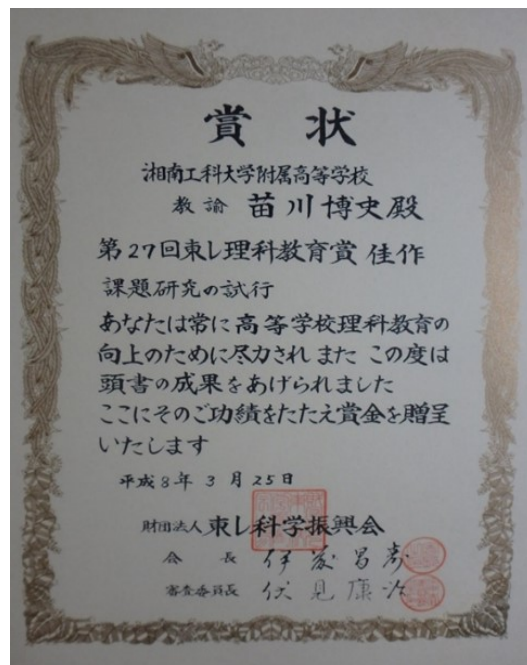 賞状
湘南工科大学附属高等学校
教諭 苗川博史殿
第27回東レ理科教育賞 佳作
課題研究の試行
あなたは常に高等学校理科教育の
向上のために尽力され また この度は
頭書の成果をあげられました
ここにそのご功績をたたえ賞金を贈呈
いたします
平成8年3月25日
財団法人 東レ科学振興会
会長 伊藤昌壽
審査委員長 伏見康治